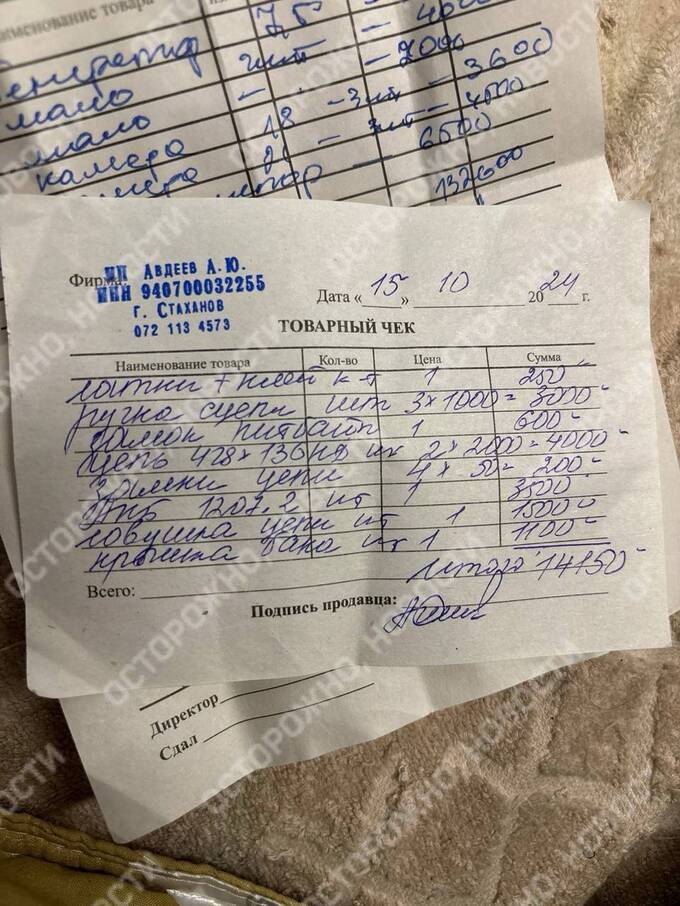 именование товара
Генератор 75
мало шт — 2000
мало — " —
камера 18 - 3шт - 3600
21 - 3шт - 4500
6500
132600
Фирма: ИП АВДЕЕВ А. Ю.
ИНН 940700032255
г. СТАХАНОВ
072 113 4573
Дата « 15 » 10 20 24 г.
ТОВАРНЫЙ ЧЕК
Наименование товара Кол-во Цена Сумма
латки + клей к-т 1 250
ручка сцепл шт 3 x 1000 = 3000
замок питбайк 1 600
цепь 428 x 136 шт 2 x 2000 = 4000
замки цепи 4 x 50 = 200
1207.2 шт 1 3500
ловушка цепи шт 1 1500
крышка бака шт 1 1100
Итого 14150
Всего:
Подпись продавца:
Директор
Сдал
ОСТОРОЖНО, НОВОСТИ